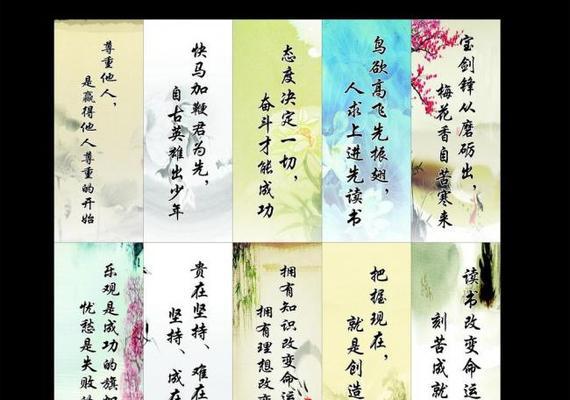 尊重他人，
是赢得他人尊重的开始
快马加鞭君为先，
自古英雄出少年
态度决定一切，
奋斗才能成功
鸟欲高飞先振翅，
人求上进先读书
宝剑锋从磨砺出，
梅花香自苦寒来
乐观是成功的旗
忧愁是失败
贵在坚持、难在
坚持、成在
拥有知识改变命运
拥有理想改变
把握现在，
就是创造
读书改变命运
刻苦成就